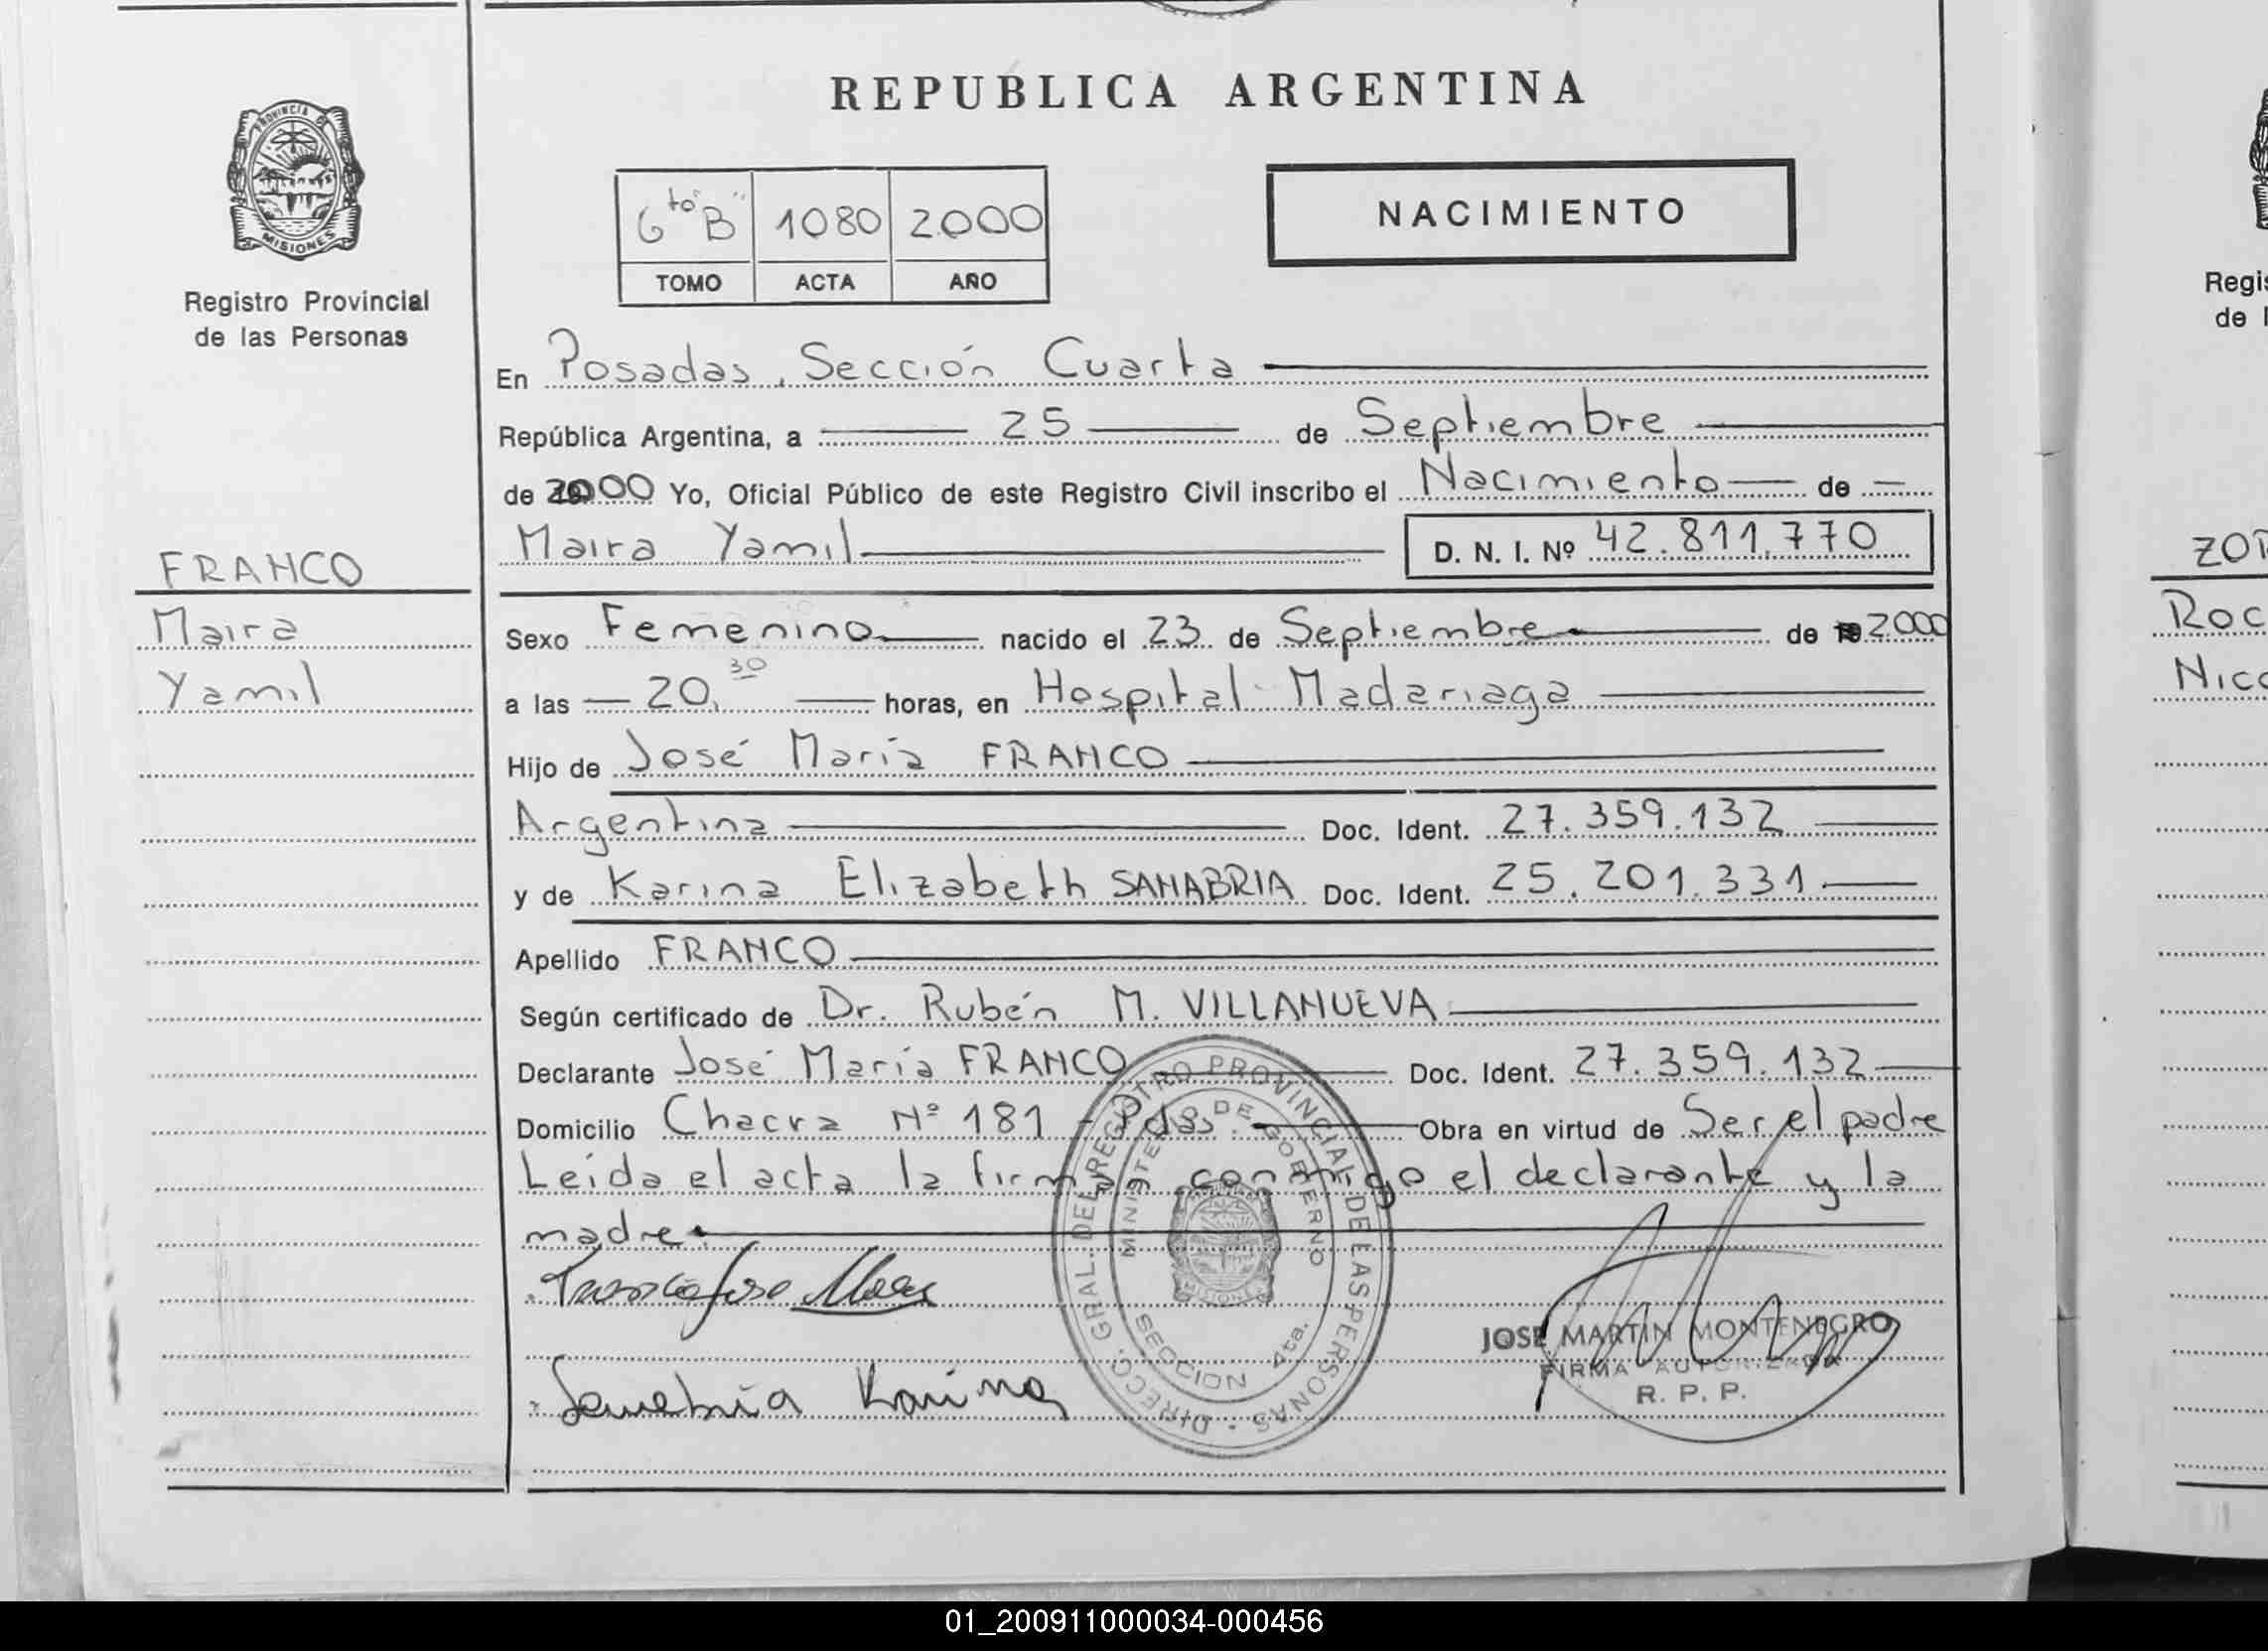 REPUBLICA ARGENTINA
PROVINCIA DE
MISIONES
Registro Provincial
de las Personas
6to "B" 1080 2.000
TOMO ACTA AÑO
NACIMIENTO
En Posadas, Sección Cuarta
República Argentina, a 25 de Septiembre
de 2000 Yo, Oficial Público de este Registro Civil inscribo el Nacimiento de
Maira Yamil D. N. I. Nº 42.811.770
FRANCO
Maira
Yamil
Sexo Femenino nacido el 23 de Septiembre de 2000
a las 20,30 horas, en Hospital Madariaga
Hijo de José María FRANCO
Argentina Doc. Ident. 27.359.132
y de Karina Elizabeth SANABRIA Doc. Ident. 25.201.331
Apellido FRANCO
Según certificado de Dr. Rubén M. VILLANUEVA
Declarante José María FRANCO Doc. Ident. 27.359.132
Domicilio Chacra Nº 181 - Pdas. Obra en virtud de Ser el padre
Leída el acta la firman conmigo el declarante y la
madre.
Sanabria Karina
DIRECC. GRAL. DEL REGISTRO PROVINCIAL DE LAS PERSONAS
MINISTERIO DE GOBIERNO
SECCION 4ta.
MISIONES
JOSE MARTIN MONTENEGRO
FIRMA AUTORIZADA
R. P. P.
Regis
de l
ZOR
Roc
Nico
01_200911000034-000456